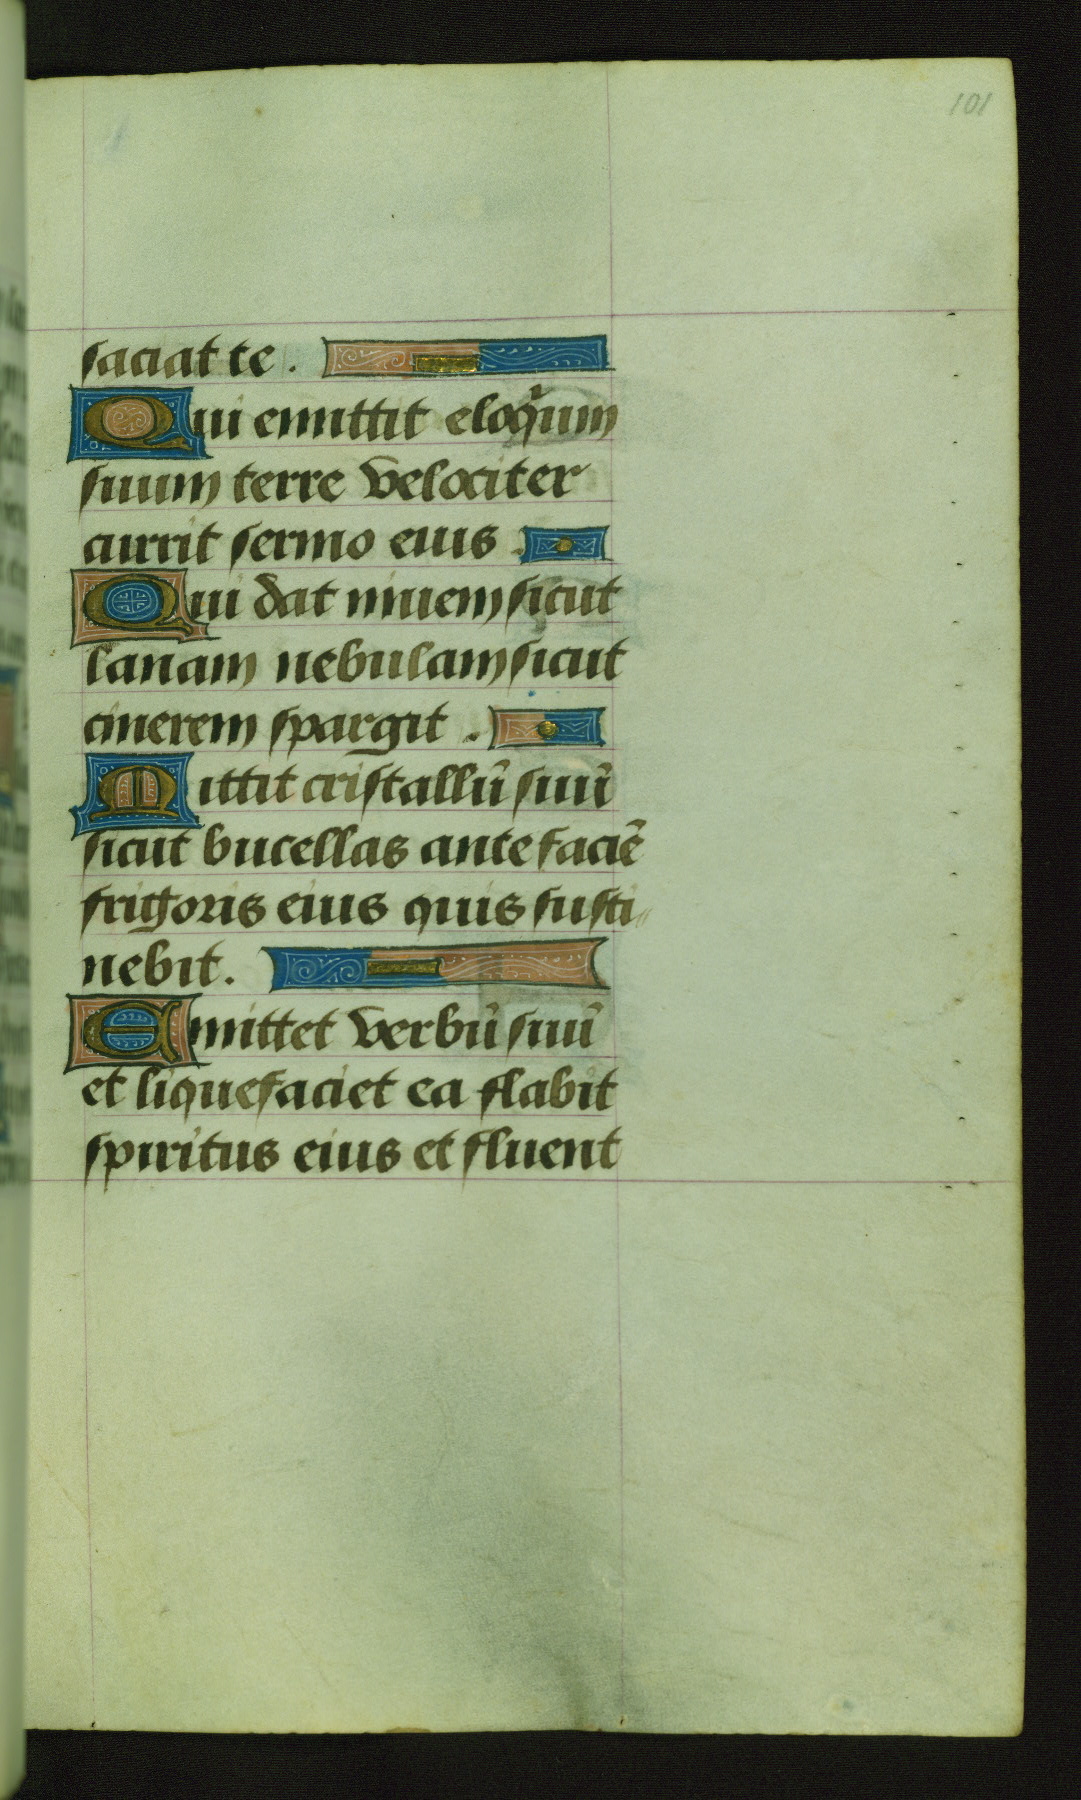 101
saciat te .
Qui emittit eloq̃uum
suum terre velociter
currit sermo eius .
Qui dat niuem sicut
lanam nebulam sicut
cinerem spargit .
Mittit cristallũ suũ
sicut bucellas ante faciẽ
frigoris eius quis susti
nebit.
Emittet verbũ suũ
et liquefaciet ea flabit
spiritus eius et fluent